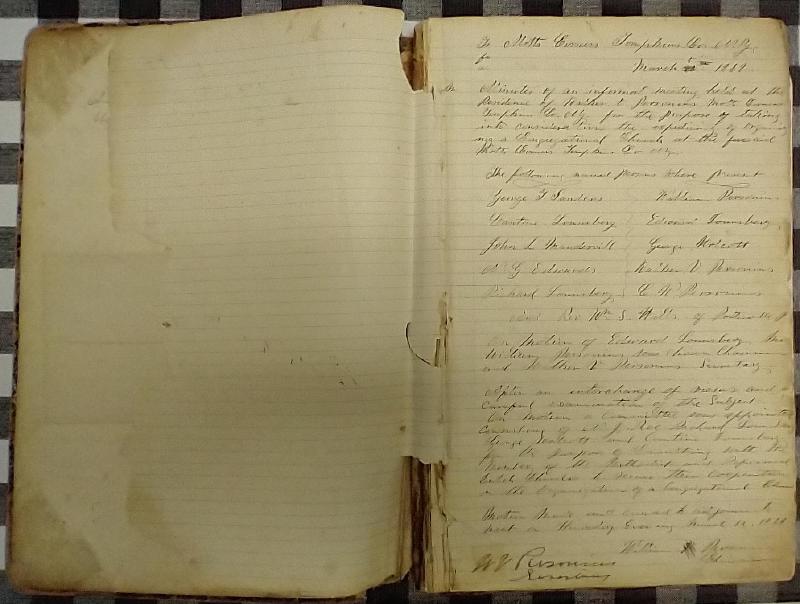 Motts Corners Tompkins Co. N.Y.
March 1881
Minutes of an informal meeting held at the
Residence of Walker V Personius Motts Corners
Tompkins Co. N.Y. for the purpose of taking
into consideration the expediency of organi
ing a Congregational Church at the
Motts Corners Tompkins Co N.Y.
The following named persons where present
George T Sanders William Personius
Lounsbery Edward Lounsbery
John L Mandevill George Wolcott
G Edwards V Personius
Richard Lounsbery C W Personius
and Rev Wm S. of
On Motion of Edward Lounsbery
Personius was chosen Chairman
and V Personius Secretary
After an interchange of views and a
careful examination of the Subject
On motion a committee was appointed
Consisting of Richard
George Wolcott and Lounsbery
for the purpose of consulting with the
Members of the Methodist and Reformed
Dutch Churches to secure their Cooperation
in the Organization of a Congregational Church
Motion made and carried to adjourn to
meet on Thursday Evening March
William Personius
W V Personius Chairman
Secretary